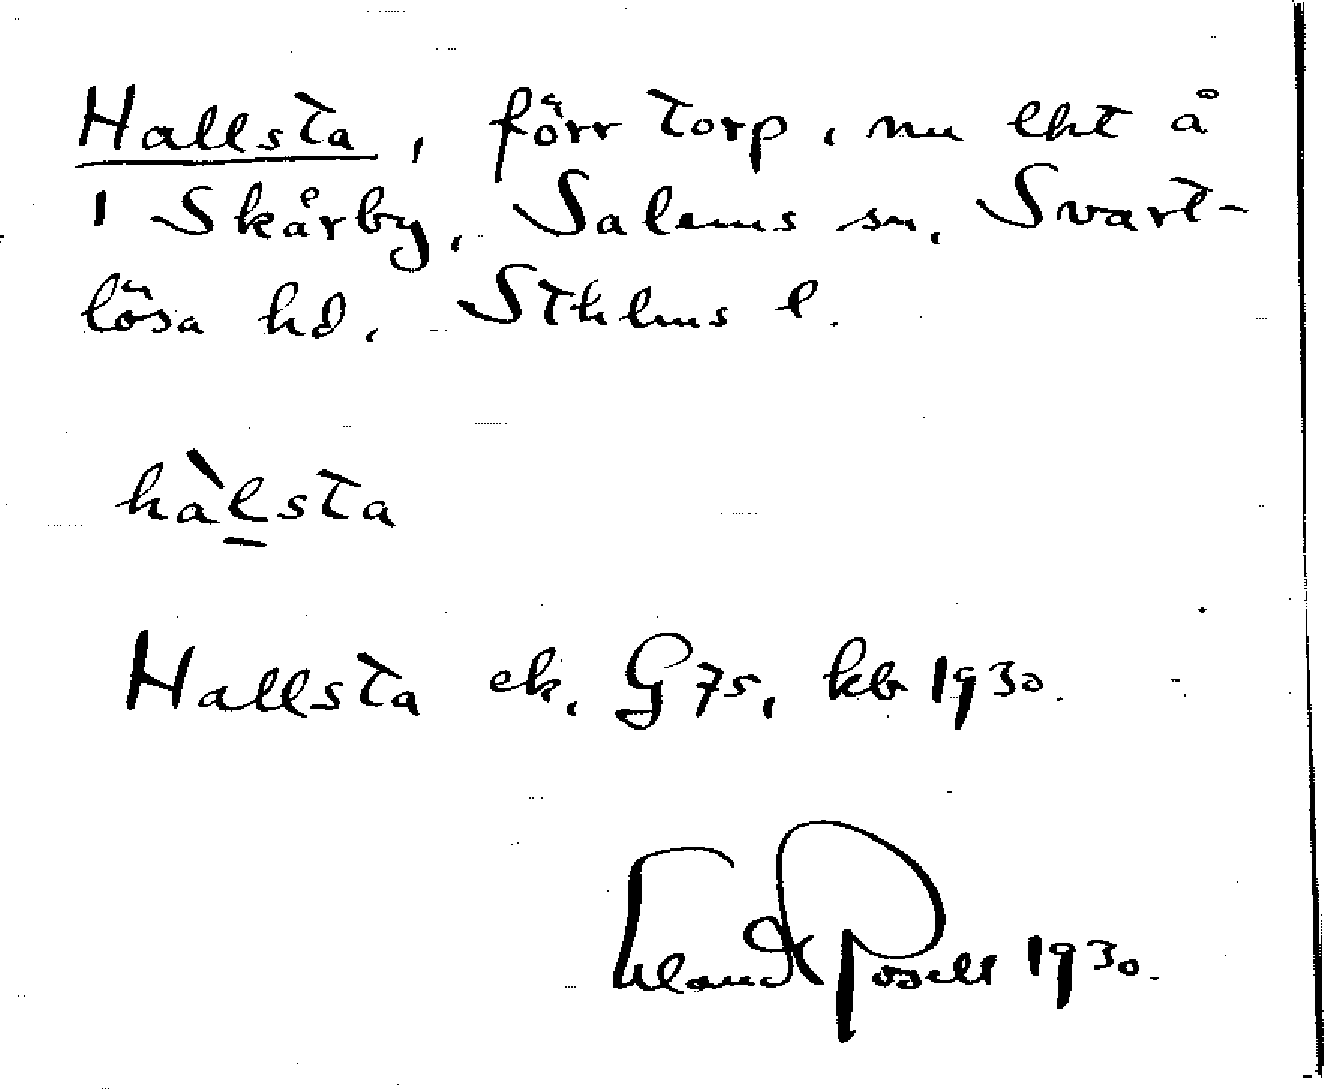 Hallsta, förr torp, nu lht å
1 Skårby, Salems sn, Svart-
lösa hd, Sthlms l.
hàlsta
Hallsta ek, G 75, kb 1930.
Erland Rosell 1930.